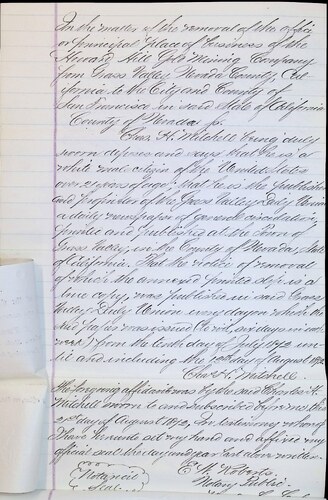 In the matter of the removal of the office
or principal place of business of the
Howard Hill Gold Mining Company
from Grass Valley, Nevada County, Cal-
ifornia to the City and County of
San Francisco in said State of California
County of Nevada ss.
Chas. H. Mitchell being duly
sworn deposes and says that he is a
white male citizen of the United States
over 21 years of age; that he is the publisher
and proprietor of the Grass Valley Daily Union
a daily newspaper of general circulation,
printed and published at the Town of
Grass Valley, in the County of Nevada, State
of California. That the notice of removal
of which the annexed printed slip is a
true copy, was published in said Grass
Valley Daily Union every day on which the
said paper was issued (to wit, six days in each
week) from the tenth day of July 1872 un-
til and including the day of August 1872
Chas. H. Mitchell.
The foregoing affidavit was by the said Charles H.
Mitchell sworn to and subscribed before me this
day of August 1872, in testimony whereof
I have hereunto set my hand and affixed my
official seal the day and year last above written.
E. W. Roberts
Notarial Notary Public
Seal